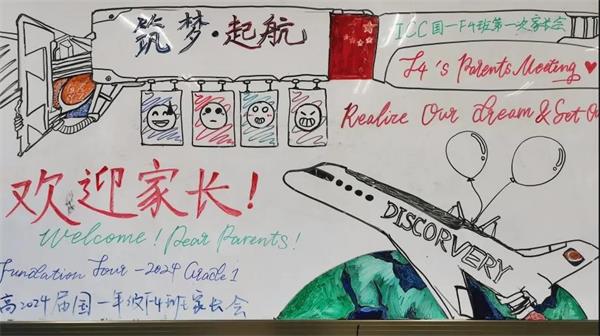 筑梦·起航
ICC国一F4班第一次家长会
F4's Parents Meeting
Realize Our dream & Set Ou
欢迎家长!
Welcome! Dear Parents!
DISCORVERY
Fundation Four-2024 Grade 1
高2024届国一年级F4班家长会